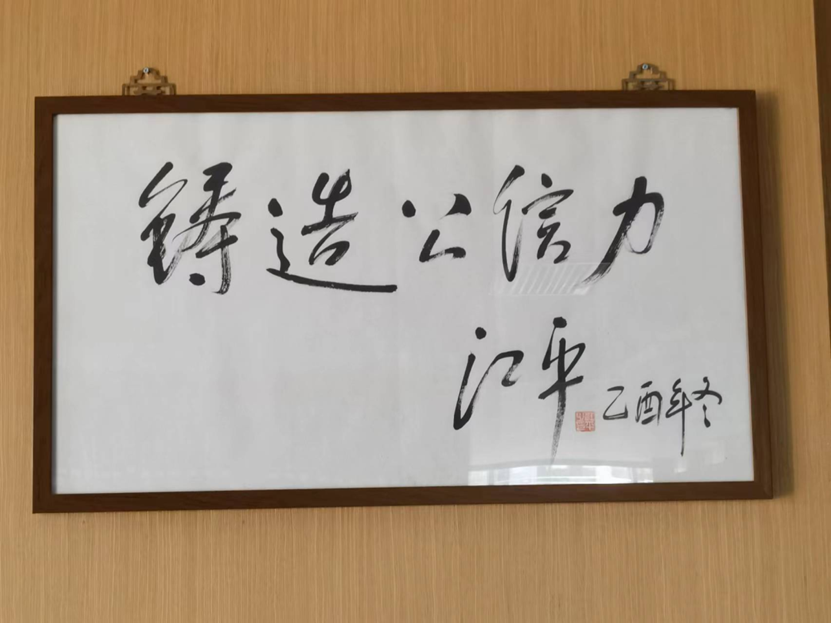 铸造公信力
江平 乙酉年冬